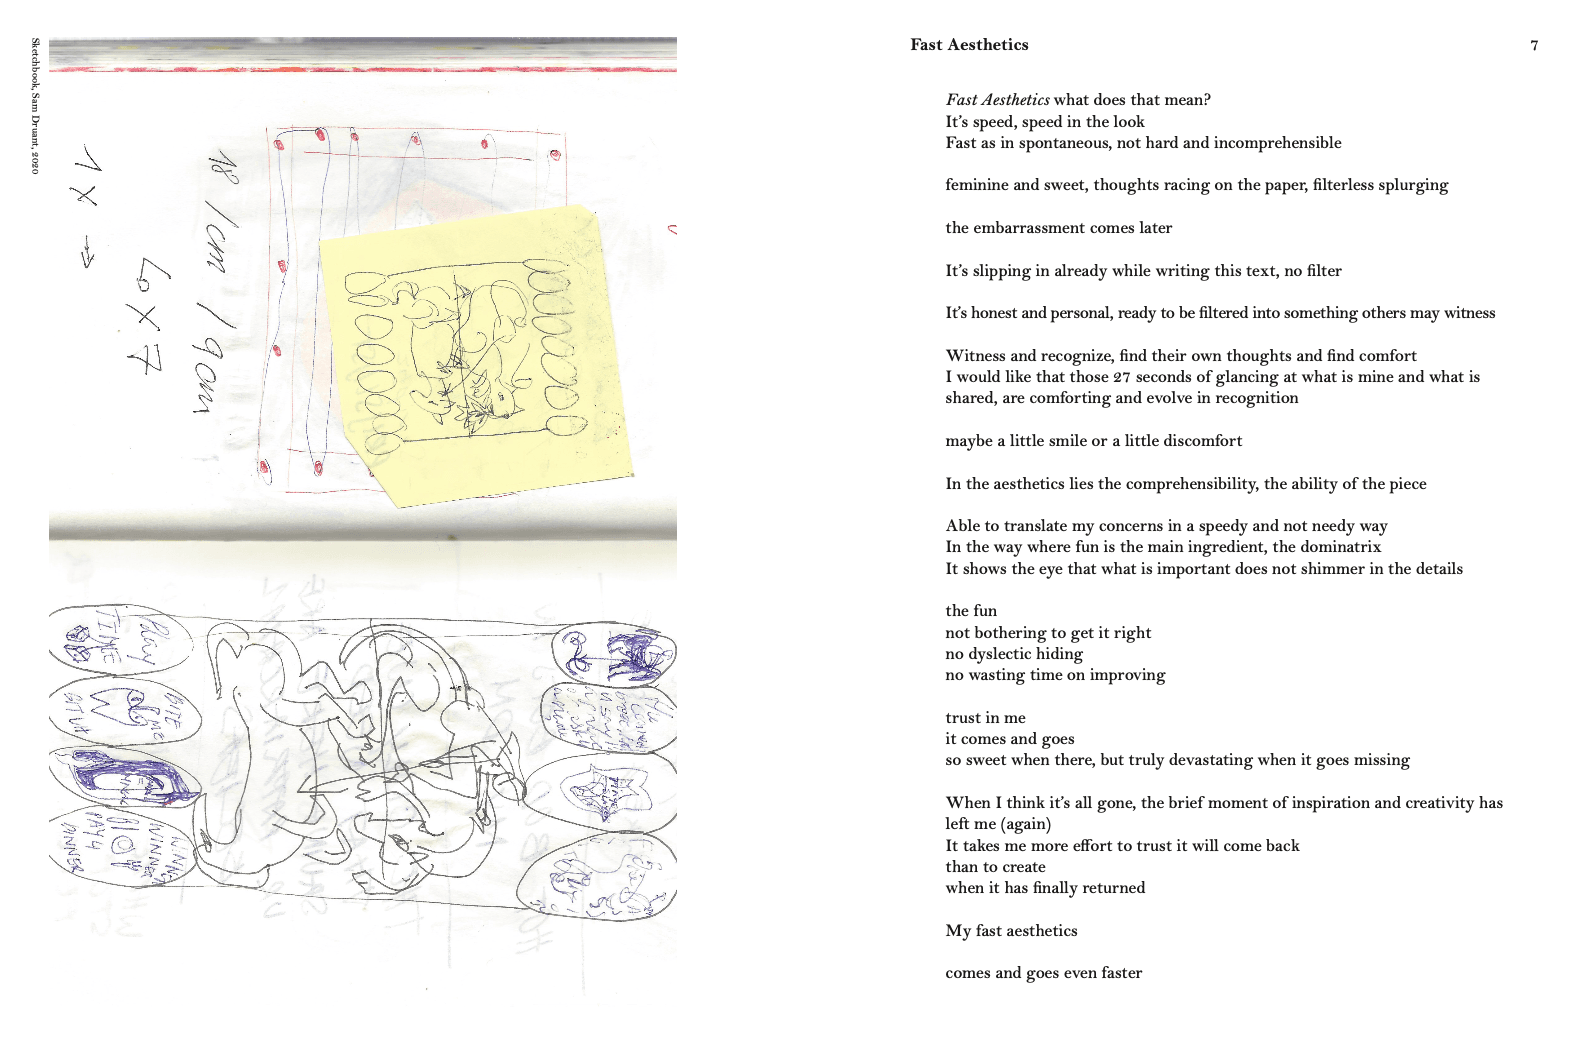 Sketchbook, Sam Druant, 2020
1 X
6 X 7
18
PLAY
TIME
BITE
ME
WINNER
WINNER
DINNER
Fast Aesthetics
7
Fast Aesthetics what does that mean?
It’s speed, speed in the look
Fast as in spontaneous, not hard and incomprehensible
feminine and sweet, thoughts racing on the paper, filterless splurging
the embarrassment comes later
It’s slipping in already while writing this text, no filter
It’s honest and personal, ready to be filtered into something others may witness
Witness and recognize, find their own thoughts and find comfort
I would like that those 27 seconds of glancing at what is mine and what is
shared, are comforting and evolve in recognition
maybe a little smile or a little discomfort
In the aesthetics lies the comprehensibility, the ability of the piece
Able to translate my concerns in a speedy and not needy way
In the way where fun is the main ingredient, the dominatrix
It shows the eye that what is important does not shimmer in the details
the fun
not bothering to get it right
no dyslectic hiding
no wasting time on improving
trust in me
it comes and goes
so sweet when there, but truly devastating when it goes missing
When I think it’s all gone, the brief moment of inspiration and creativity has
left me (again)
It takes me more effort to trust it will come back
than to create
when it has finally returned
My fast aesthetics
comes and goes even faster